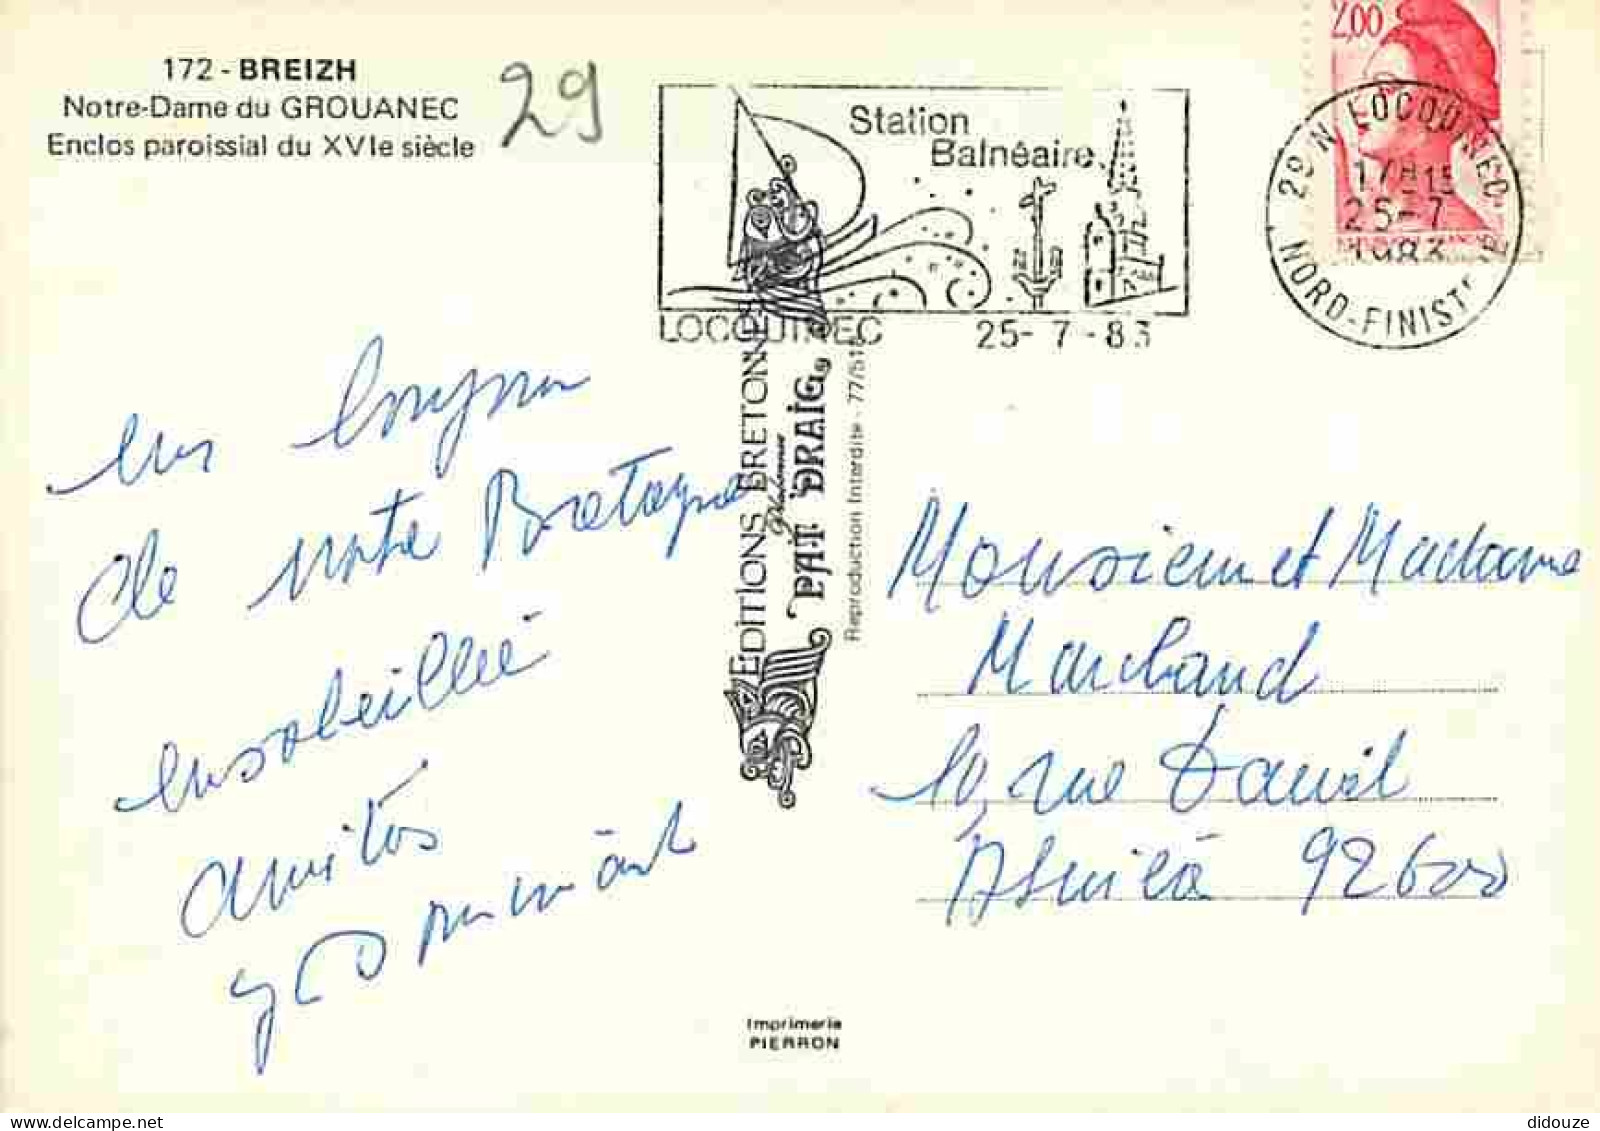 172 - BREIZH
Notre-Dame du GROUANEC
Enclos paroissial du XVIe siècle
29
Station
Balnéaire
LOCQUIREC 25-7-83
2,00
29 N LOCQUIREC
17H15
25-7
1983
NORD-FINISTERE
de notre Bretagne
ensoleillée
amitiés
EDITIONS BRETONNES
PAT DRAIG
Reproduction Interdite - 77/51
Monsieur et Madame
Marchand
10, rue
92600
Imprimerie
PIERRON
didouze